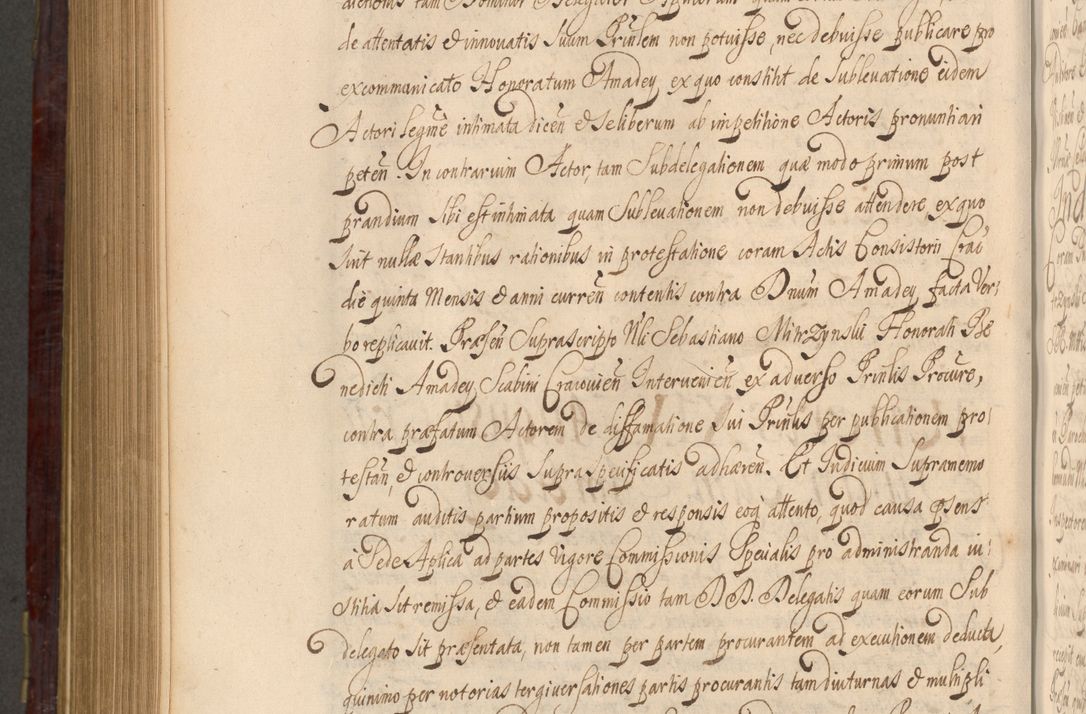 de attentatis et innovatis suum Prinlem non potuisse, nec debuisse publicare pro
excommunicato Honoratum Amadey, ex quo constitit de Sublevatione eidem
Actori legme intimata dicen et se liberum ab impetitione Actoris pronuntiari
peten. In contrarium Actor, tam Subdelegationem quæ modo primum post
prandium sibi est intimata quam Sublevationem non debuisse attendere, ex quo
sint nullæ stantibus rationibus in protestatione coram Actis Consistorii Crac
die quinta Mensis et anni curren contentis contra Dnum Amadey facta Ver-
bo replicavit. Præsen Suprascripto Nli Sebastiano Mitrzynski Honorati Be
nedicti Amadey Scabini Cracovien Intervenien, ex adverso Prinlis Procure,
contra præfatum Actorem de diffamatione sui Prinlis per publicationem pro-
testan, et controversiis supraspecificatis adhæren. Et Iudicium Supramemo
ratum auditis partium propositis et responsis eoq attento, quod causa psens
a Sede Aplica ad partes vigore Commissionis Specialis pro administranda iu-
stitia sit remissa, et eadem Commissio tam D.D. Delegatis quam eorum Sub
delegato sit præsentata, non tamen per partem procurantem ad executionem deducta,
quinimo per notorias tergiversationes partis procurantis tam diuturnas et multipli